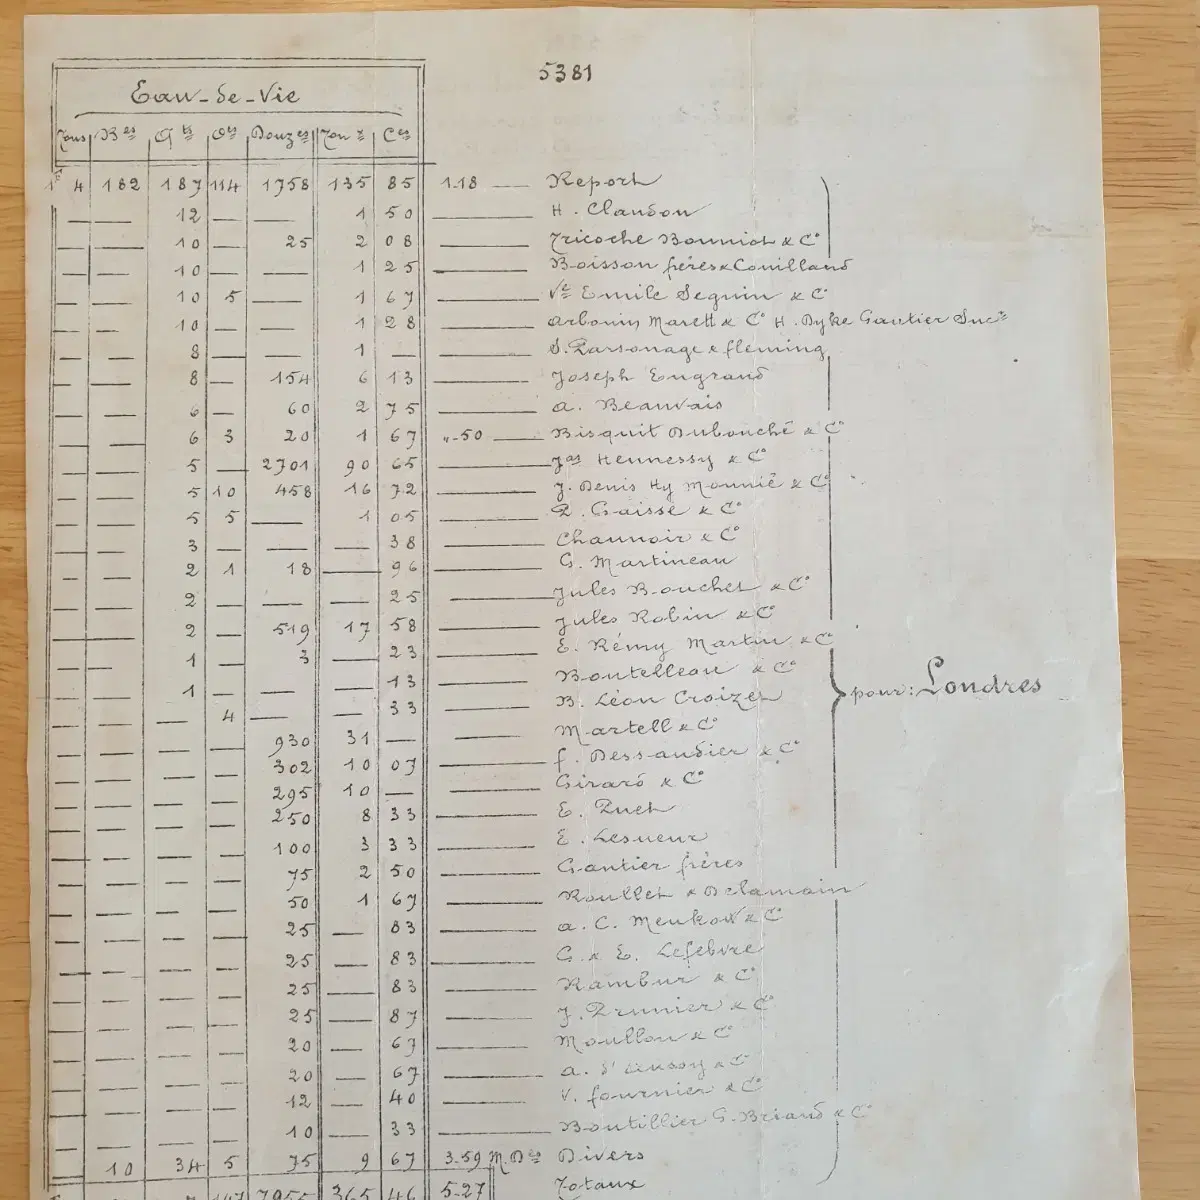 5381
Eau-de-Vie
Tons Bes Qts Oes Douzes Tonx Ces
4 182 187 114 1758 135 85 1.18 — Report
— — 12 — — 1 50 — H. Claudon
— — 10 — 25 2 08 — Tricoche Bonniot & Co
— — 10 — — 1 25 — Boisson frères & Couilland
— — 10 5 — 1 67 — Ve Emile Seguin & Co
— — 10 — — 1 28 — Arbouin Marett & Co H. Dyke Gautier Sucr
— — 8 — — 1 — — S. Parsonage & fleming
— — 8 — 154 6 13 — Joseph Engrand
— — 6 — 60 2 75 — A. Beauvais
— — 6 3 20 1 67 "-50 — Bisquit Dubouché & Co
— — 5 — 2701 90 65 — Jas Hennessy & Co
— — 5 10 458 16 72 — J. Denis Hy Mounié & Co
— — 5 5 — 1 05 — P. Gaisse & Co
— — 3 — — — 38 — Chaunoir & Co
— — 2 1 18 — 96 — G. Martineau
— — 2 — — — 25 — Jules Bouchet & Co
— — 2 — 519 17 58 — Jules Robin & Co
— — 1 — 3 — 23 — E. Rémy Martin & Co
— — 1 — — — 13 — Boutelleau & Co
— — — 4 — — 33 — B. Léon Croizet
pour: Londres
— — — — 930 31 — — Martell & Co
— — — — 302 10 07 — f. Dessandier & Co
— — — — 295 10 — — Girard & Co
— — — — 250 8 33 — E. Puet
— — — — 100 3 33 — E. Lesueur
— — — — 75 2 50 — Gautier frères
— — — — 50 1 67 — Roullet & Delamain
— — — — 25 — 83 — A. C. Meukow & Co
— — — — 25 — 83 — G. & E. Lefebvre
— — — — 25 — 83 — Rambur & Co
— — — — 25 — 87 — J. Prunier & Co
— — — — 20 — 67 — Moullon & Co
— — — — 20 — 67 — A. d'Aussy & Co
— — — — 12 — 40 — V. fournier & Co
— — — — 10 — 33 — Boutillier G. Briand & Co
— 10 34 5 75 9 67 3.59 M. Des Divers
147 7955 365 46 5-27 Totaux